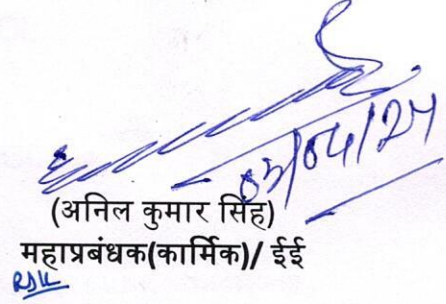 03/04/24
(अनिल कुमार सिंह)
महाप्रबंधक(कार्मिक)/ ईई